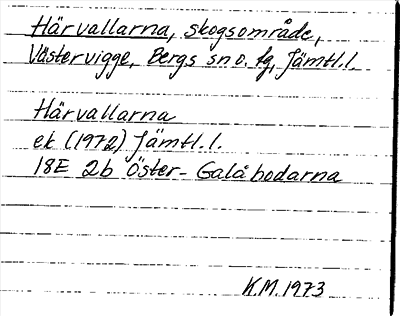 Härvallarna, skogsområde,
Västervigge, Bergs sn o. tg, Jämtl.l.
Härvallarna
ek (1972) Jämtl.l.
18E 2b Öster-Galåbodarna
K.M. 1973